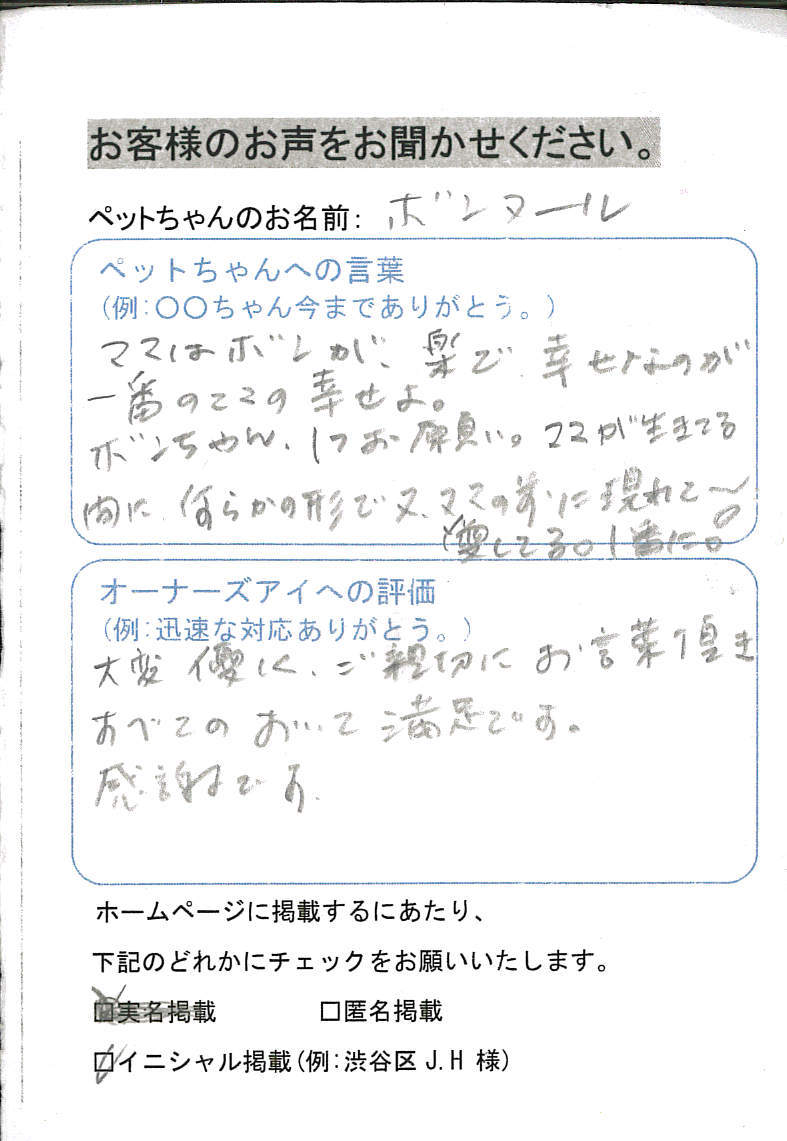 お客様のお声をお聞かせください。
ペットちゃんのお名前: ボンヌール
ペットちゃんへの言葉
(例:〇〇ちゃん今までありがとう。)
ママはボンが、楽で 幸せなのが
一番のママの幸せよ。
ボンちゃん、1つお願い。ママが生きてる
間に 何らかの形で又、ママの前に現れて〜
愛してる。1番に。
オーナーズアイへの評価
(例:迅速な対応ありがとう。)
大変 優しく、ご親切に お言葉頂き
すべてのおいて 満足です。
感謝です。
ホームページに掲載するにあたり、
下記のどれかにチェックをお願いいたします。
☑実名掲載 □匿名掲載
☑イニシャル掲載(例:渋谷区 J.H 様)